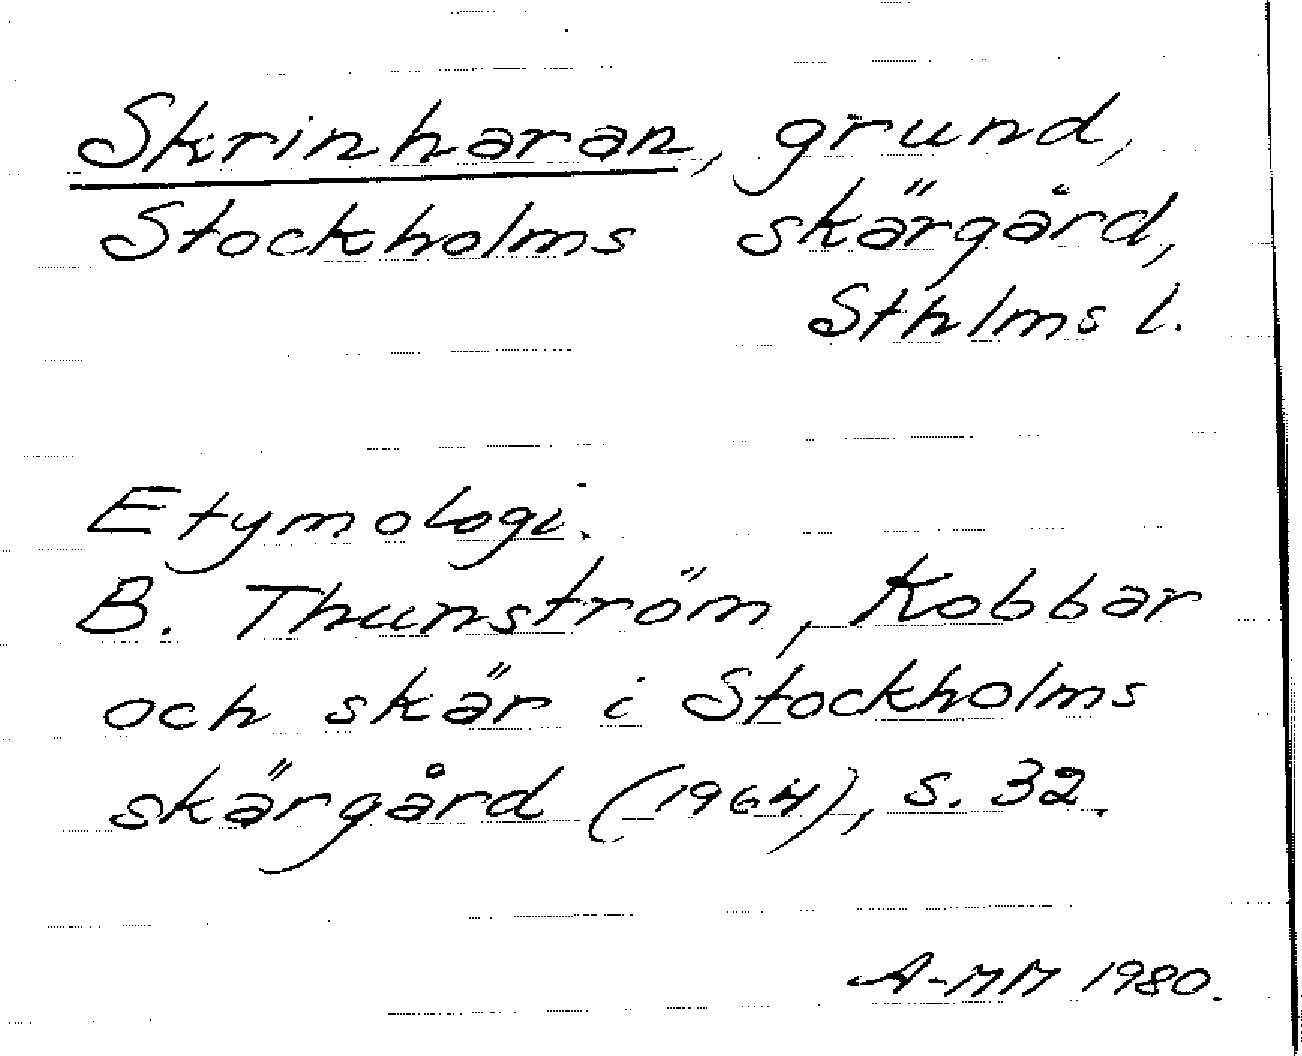 Skrinharan, grund,
Stockholms skärgård,
Sthlms l.
Etymologi.
B. Thunström, Kobbar
och skär i Stockholms
skärgård (1964), s. 32.
A-MM 1980.